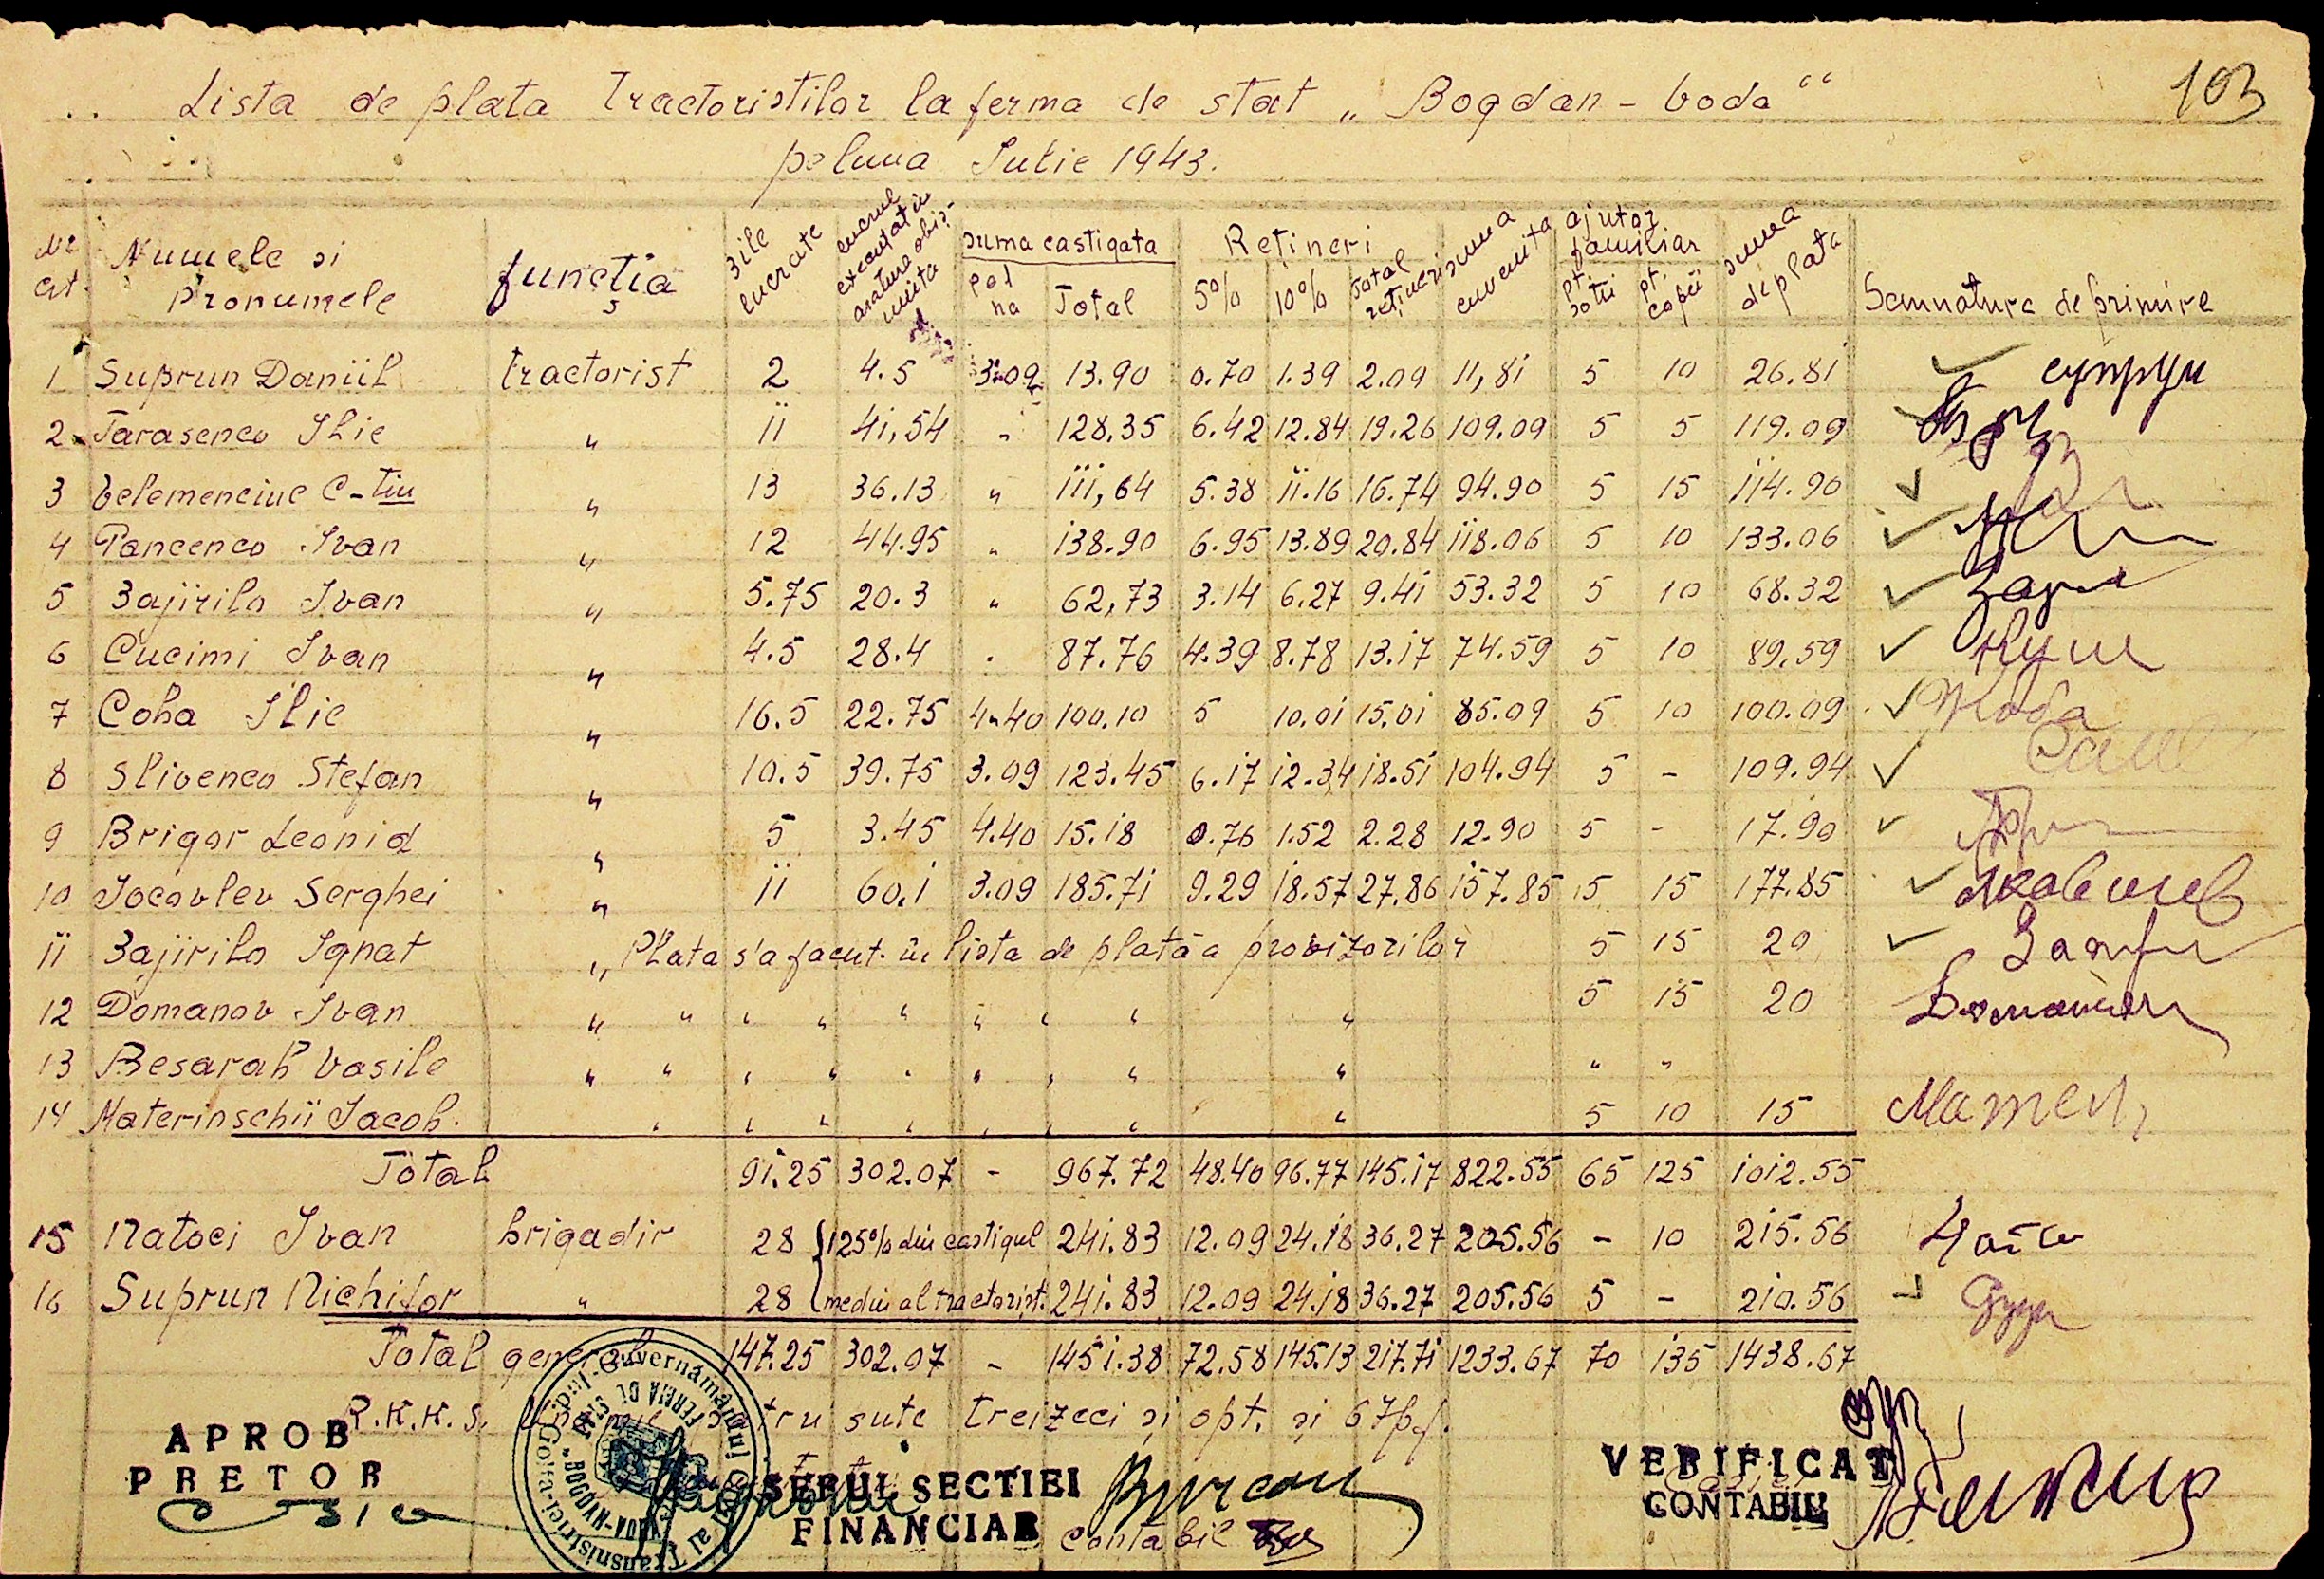 103
Lista de plata Tractoristilor la ferma de stat „Bogdan - Voda“
pe luna Iulie 1943.
Nr crt. Numele si Pronumele funcția zile lucrate lucrul executat in aratura obis-nuita suma castigata pe 1 ha Total Rețineri 5% 10% Total rețineri suma cuvenita ajutor familiar pt. sotii pt. copii suma de plata Semnatura de primire
1 Suprun Daniil tractorist 2 4.5 3.09 13.90 0.70 1.39 2.09 11,81 5 10 26.81 супрун
2 Tarasenco Ilie " 11 41,54 " 128,35 6.42 12.84 19.26 109.09 5 5 119.09
3 Velemenciuc C-tin " 13 36.13 " 111,64 5.38 11.16 16.74 94.90 5 15 114.90
4 Pancenco Ivan " 12 44.95 " 138.90 6.95 13.89 20.84 118.06 5 10 133.06
5 Zajirilo Ivan " 5.75 20.3 " 62,73 3.14 6.27 9.41 53.32 5 10 68.32
6 Cucimi Ivan " 4.5 28.4 " 87.76 4.39 8.78 13.17 74.59 5 10 89,59
7 Coha Ilie " 16.5 22.75 4.40 100.10 5 10.01 15.01 85.09 5 10 100.09
8 Slivenco Stefan " 10.5 39.75 3.09 123.45 6.17 12.34 18.51 104.94 5 - 109.94
9 Brigor Leonid " 5 3.45 4.40 15.18 0.76 1.52 2.28 12.90 5 - 17.90
10 Iocovlev Serghei " 11 60.1 3.09 185.71 9.29 18.57 27.86 157.85 5 15 177.85
11 Zajirilo Ignat " Plata s'a facut in lista de plată a provizorilor 5 15 20
12 Domanov Ivan " " " " " " " " " 5 15 20
13 Besarab Vasile " " " " " " " " " " "
14 Materinschii Iacob. " " " " " " " " 5 10 15
Total 91.25 302.07 - 967.72 48.40 96.77 145.17 822.55 65 125 1012.55
15 Natoci Ivan brigadir 28 125% din castigul 241.83 12.09 24.18 36.27 205.56 - 10 215.56
16 Suprun Nichifor " 28 mediu al tractorist. 241.83 12.09 24.18 36.27 205.56 5 - 210.56
Total general 147.25 302.07 - 1451.38 72.58 145.13 217.71 1233.67 70 135 1438.67
R.K.K.S. patru sute treizeci și opt. și 67 pf.
APROB
PRETOR
SEFUL SECTIEI
FINANCIAR
Contabil
VERIFICAT
CONTABIL
Guvernamantul Transnistriei
FERMA DE STAT
"BOGDAN-VODA"